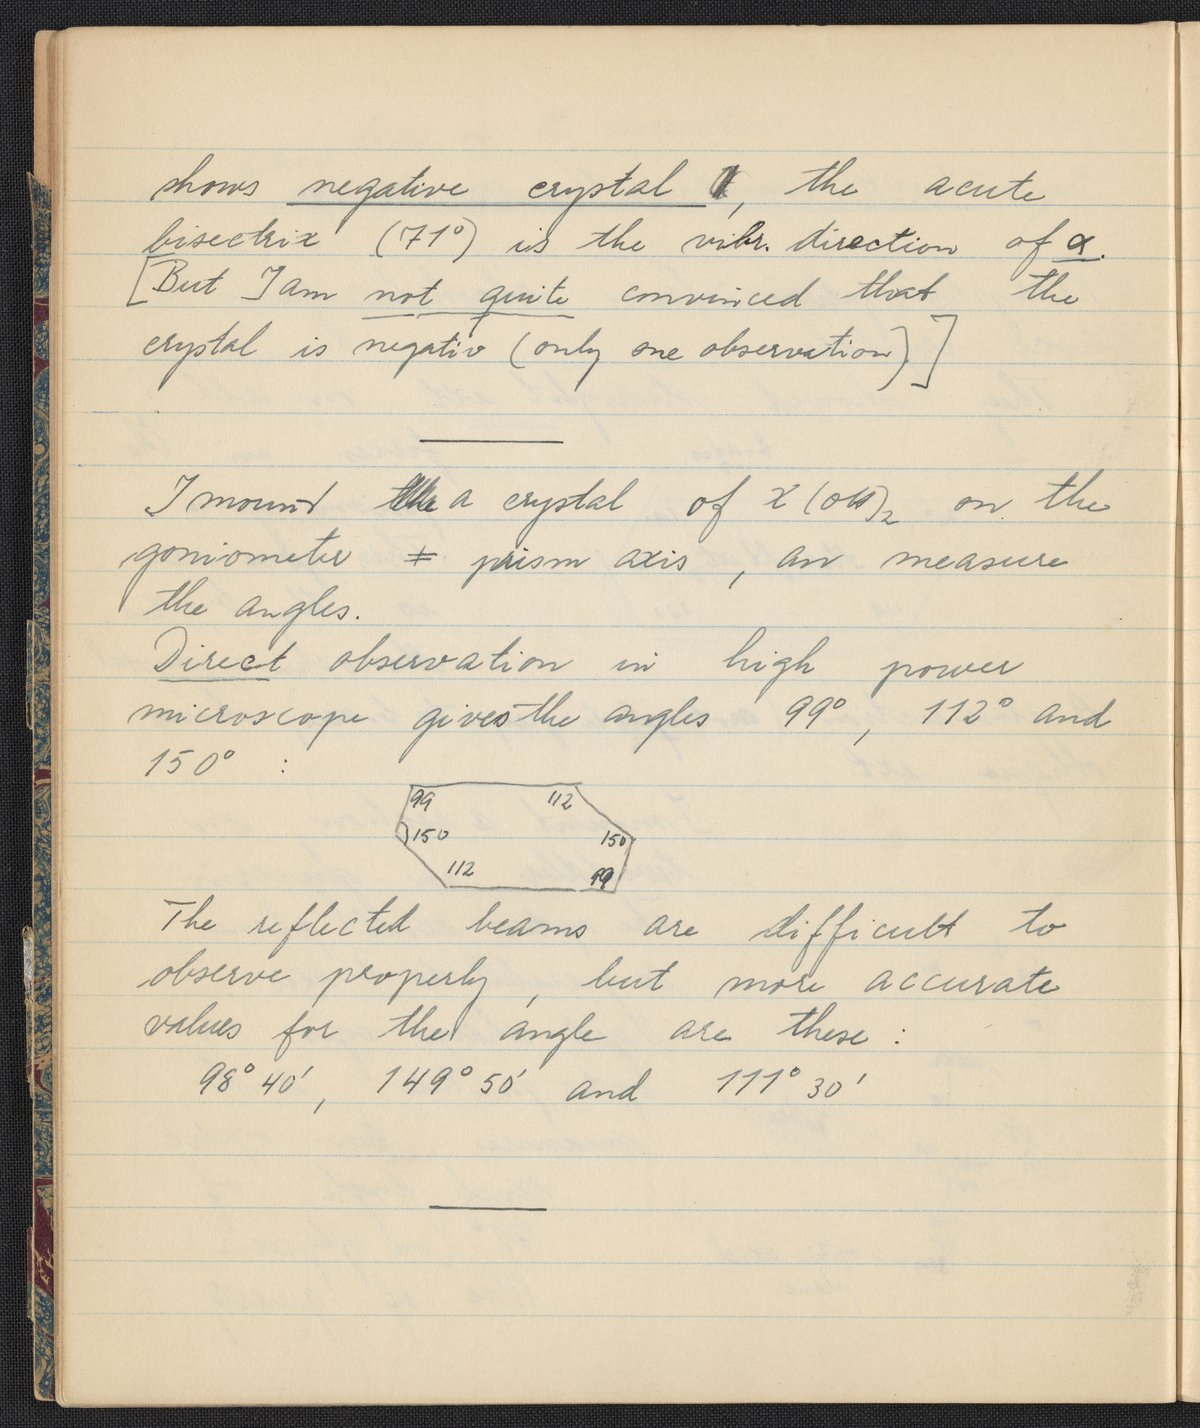 shows negative crystal, the acute
bisectrix (71°) is the vibr. direction of α.
[But I am not quite convinced that the
crystal is negativ (only one observation).]
I mount a crystal of X(OH)₂ on the
goniometer ⧧ prism axis, an measure
the angles.
Direct observation in high power
microscope gives the angles 99°, 112° and
150° :
99 112
150 150
112 99
The reflected beams are difficult to
observe properly, but more accurate
values for the angle are these :
98° 40', 149° 50' and 111° 30'